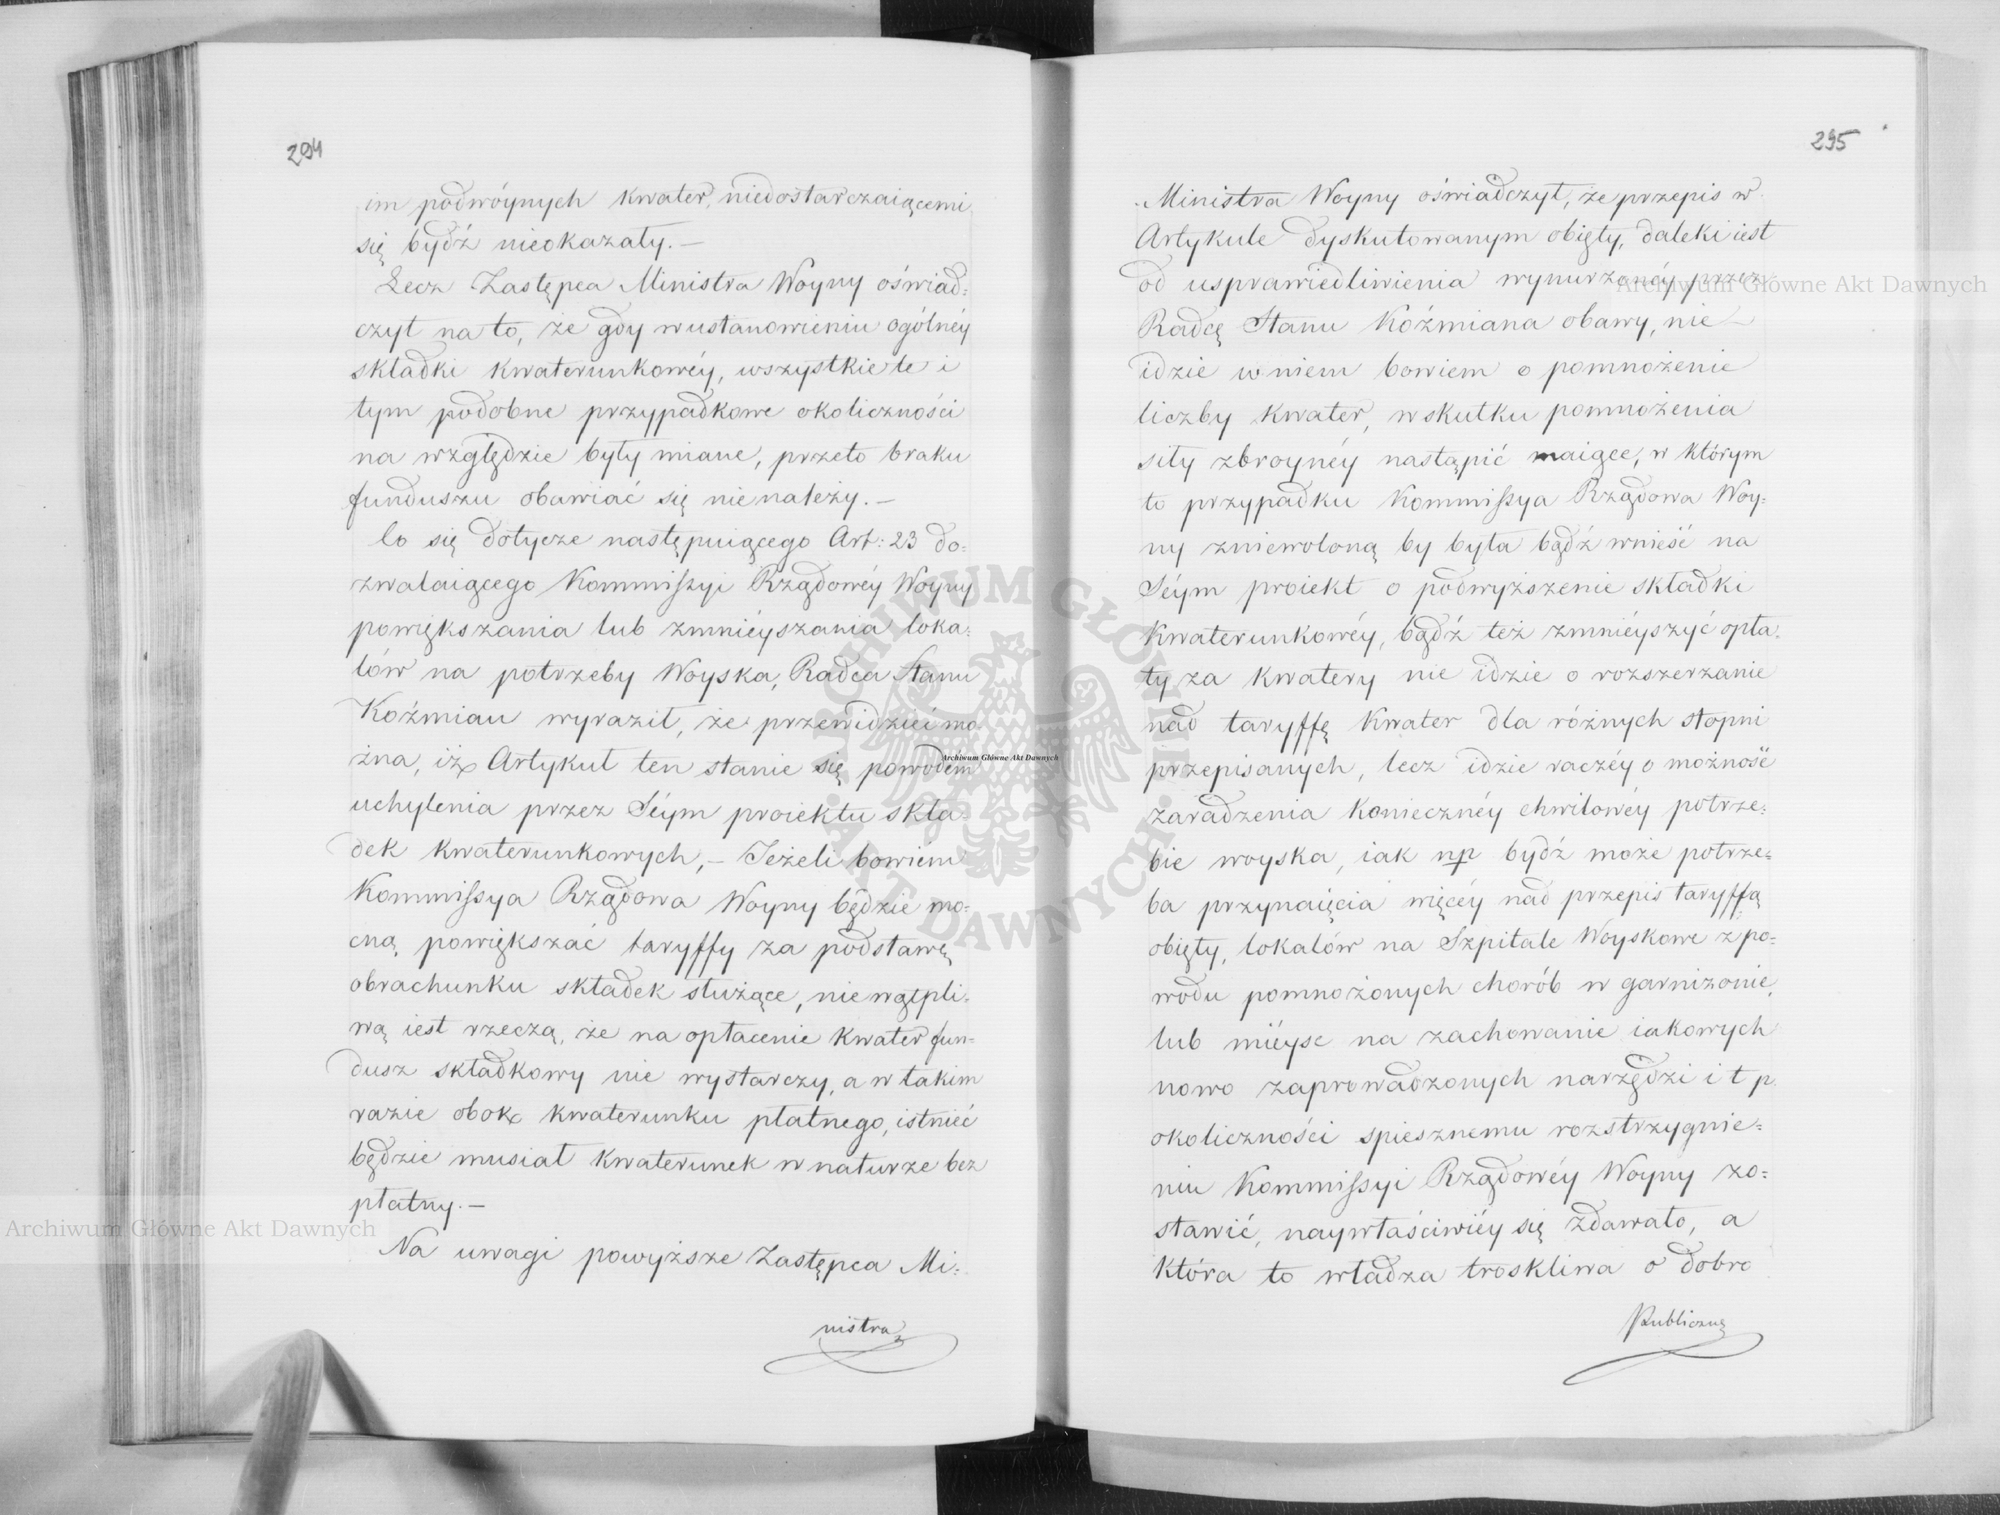 294
im podwóynych kwater, niedostarczaiącemi
się bydź nieokazały.—
Lecz Zastępca Ministra Woyny oświad:
czył na to, że gdy w ustanowieniu ogólnéy
składki kwaterunkowéy, wszystkie te i
tym podobne przypadkowe okoliczności
na względzie były miane, przeto braku
funduszu obawiać się nienależy.—
Co się dotycze następuiącego Art: 23 do:
zwalaiącego Kommissyi Rządowéy Woyny
powiększania lub zmnieyszania loka:
lów na potrzeby Woyska, Radca Stanu
Koźmian wyraził, że przewidzieć mo:
żna, iż Artykuł ten stanie się powodem
uchylenia przez Séym proiektu skła:
dek kwaterunkowych,— Jeżeli bowiem
Kommissya Rządowa Woyny będzie mo:
cną powiększać taryffy za podstawę
obrachunku składek służące, niewątpli:
wą iest rzeczą, że na opłacenie kwater fun:
dusz składkowy nie wystarczy, a w takim
razie obok kwaterunku płatnego, istnieć
będzie musiał kwaterunek w naturze bez
płatny.—
Na uwagi powyższe Zastępca Mi:
nistra
295
Ministra Woyny oświadczył, że przepis w
Artykule dyskutowanym obięty, daleki iest
od usprawiedliwienia wynurzonéy przez
Radcę Stanu Koźmiana obawy, nie
idzie w niem bowiem o pomnożenie
liczby kwater, w skutku pomnożenia
siły zbroynéy nastąpić maiące, w którym
to przypadku Kommissya Rządowa Woy:
ny zniewoloną by była bądź wnieść na
Séym proiekt o podwyższenie składki
kwaterunkowéy, bądź też zmnieyszyć opła:
ty za kwatery nie idzie o rozszerzanie
nad taryffę kwater dla różnych stopni
przepisanych, lecz idzie raczéy o możność
zaradzenia koniecznéy chwilowéy potrze:
bie woyska, iak np bydź może potrze:
ba przynaięcia więcéy nad przepis taryffą
obięty, lokalów na Szpitale Woyskowe z po:
wodu pomnożonych chorób w garnizonie,
lub mieysc na zachowanie iakowych
nowo zaprowadzonych narzędzi i t p.
okoliczności spiesznemu rozstrzygnie:
niu Kommissyi Rządowéy Woyny zo:
stawić, naywłaściwiéy się zdawało, a
która to władza troskliwa o dobro
Publiczne
Archiwum Główne Akt Dawnych
Archiwum Główne Akt Dawnych
Archiwum Główne Akt Dawnych
ARCHIWUM GŁÓWNE AKT DAWNYCH